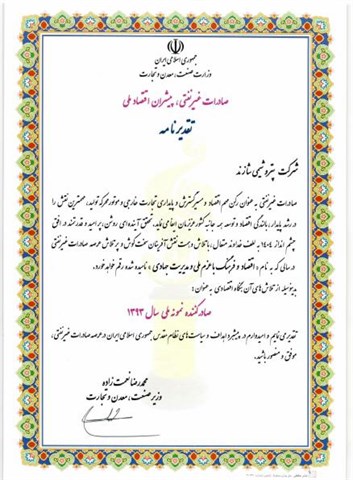 جمهوری اسلامی ایران
وزارت صنعت، معدن و تجارت
صادرات غیرنفتی، پیشران اقتصاد ملی
تقدیرنامه
شرکت پتروشیمی شازند
صادرات غیرنفتی به عنوان رکن مهم اقتصاد و مسیر گسترش و پایداری تجارت خارجی و موتور محرکه تولید، مهمترین نقش را
در رشد پایدار، بالندگی اقتصاد و توسعه همه جانبه کشور عزیزمان ایفا می نماید. تحقق آینده‌ای روشن، پر امید و قدرتمند در افق
چشم انداز ۱۴۰۴ به لطف خداوند متعال، با تلاش و همت نقش آفرینان سخت کوش و پر تلاش عرصه صادرات غیرنفتی
در سالی که به نام « اقتصاد و فرهنگ با عزم ملی و مدیریت جهادی » نامیده شده رقم خواهد خورد.
بدینوسیله از تلاش‌های آن بنگاه اقتصادی به عنوان:
صادرکننده نمونه ملی سال ۱۳۹۳
تقدیر می نمایم و امیدوارم در پیشبرد اهداف و سیاست های نظام مقدس جمهوری اسلامی ایران در عرصه صادرات غیرنفتی،
موفق و منصور باشید.
محمدرضا نعمت زاده
وزیر صنعت، معدن و تجارت